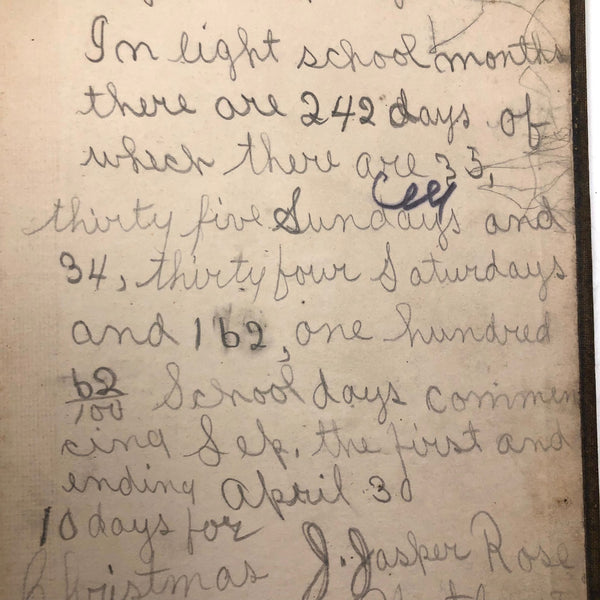 In eight school months
there are 242 days of
which there are 35,
thirty five Sundays and
34, thirty four Saturdays
and 162, one hundred
62/100 School days commen
cing Sep. the first and
ending April 30
10 days for
Christmas J. Jasper Rose